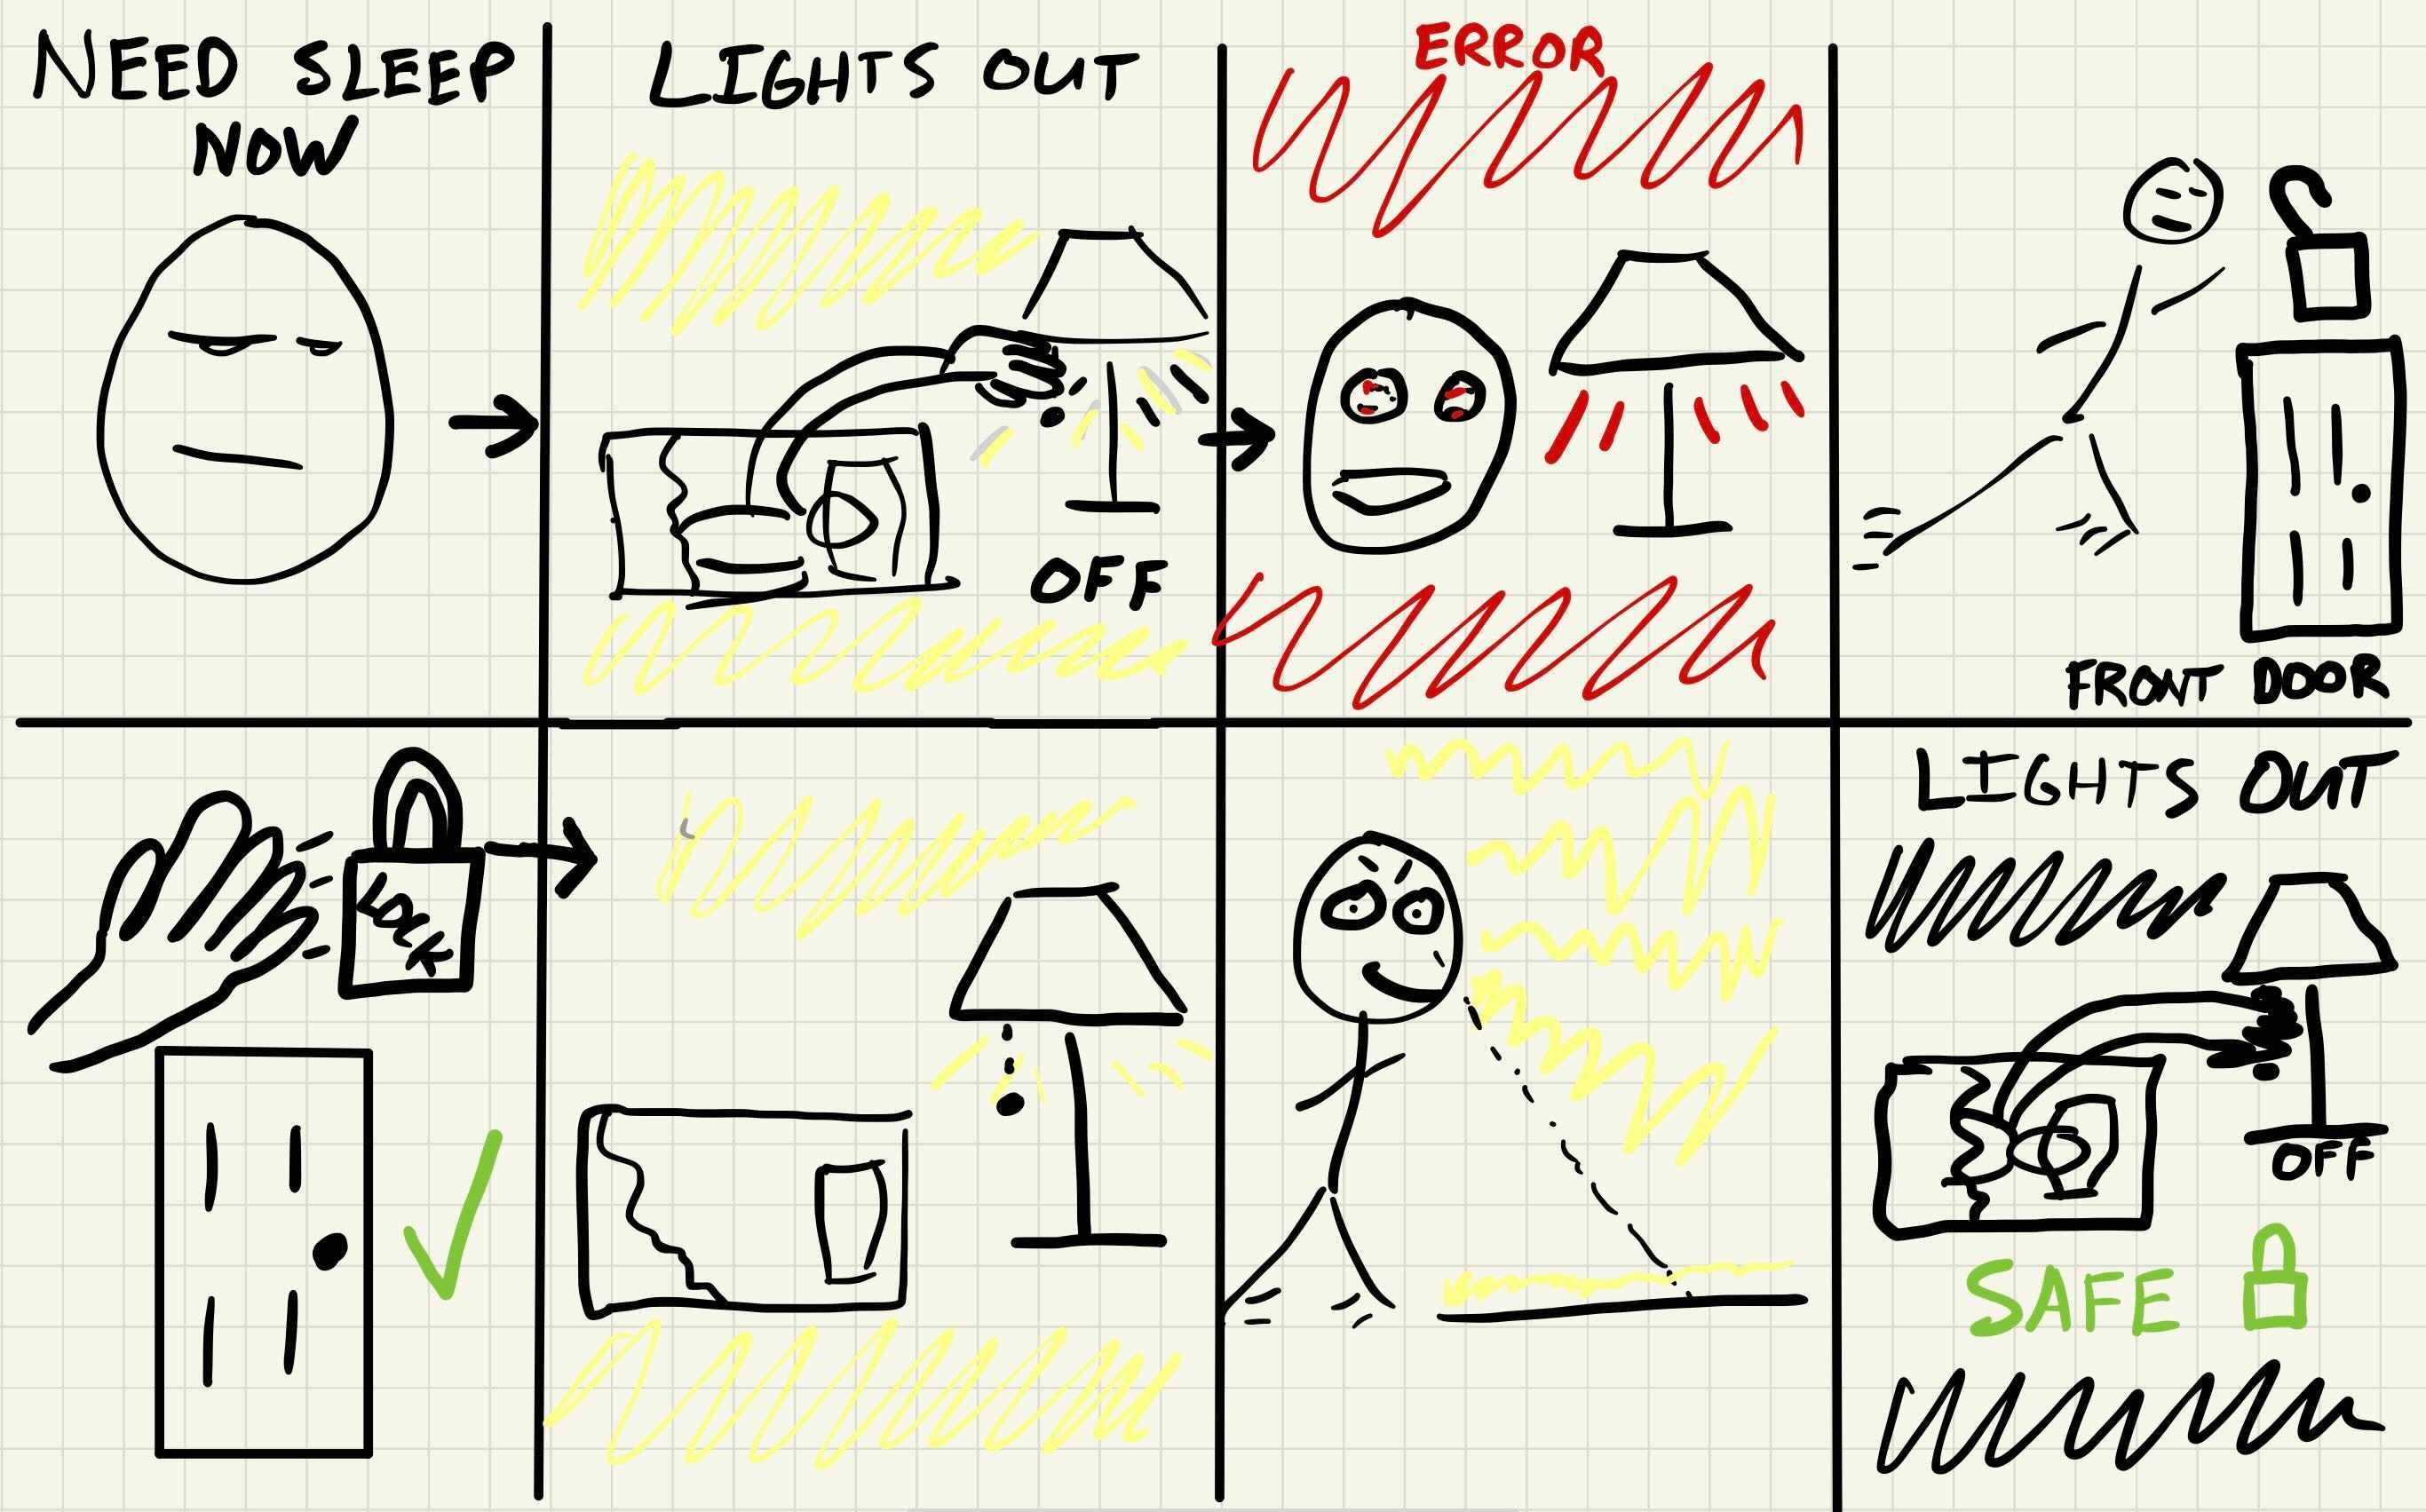 NEED SLEEP
NOW
LIGHTS OUT
OFF
ERROR
FRONT DOOR
LIGHTS OUT
OFF
SAFE